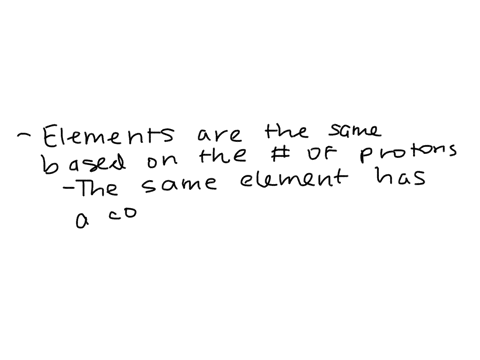 - Elements are the same
based on the # of protons
- The same element has
a co